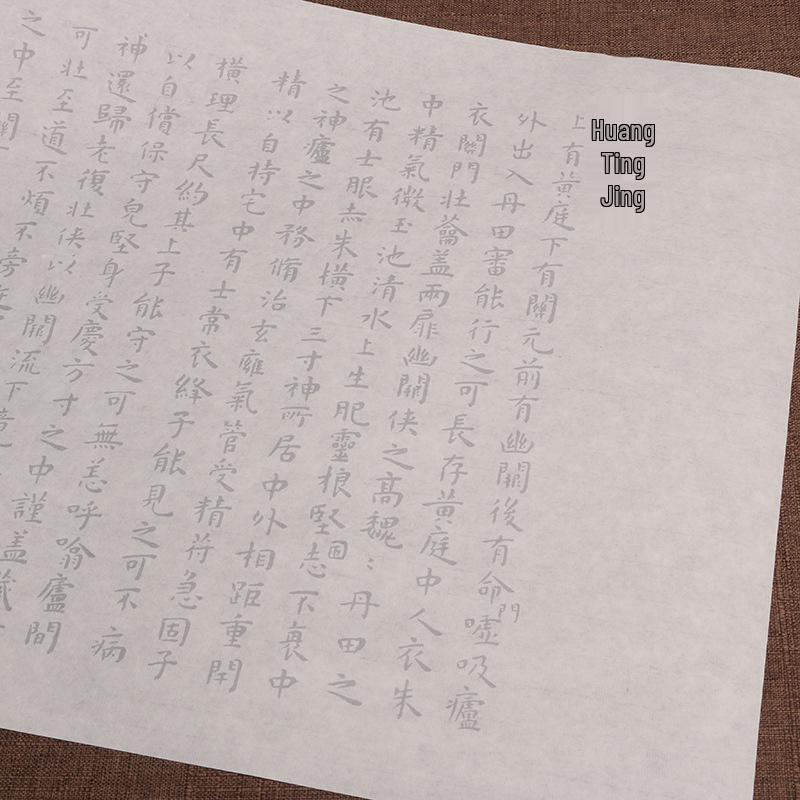 Huang
Ting
Jing
上有黃庭下有關元前有幽關後有命門噓吸廬
外出入丹田審能行之可長存黃庭中人衣朱
衣關門壯蘥蓋兩扉幽關俠之高魏：丹田之
中精氣微玉池清水上生肥靈根堅固志不衰中
池有士服赤朱橫下三寸神所居中外相距重閉
之神廬之中務脩治玄廱氣管受精符急固子
精以自持宅中有士常衣絳子能見之可不病
橫理長尺約其上子能守之可無恙呼噏廬間
以自償保守皃堅身受慶方寸之中謹蓋藏
神還歸老復壯俠以幽闕流下竟
可壯至道不煩不旁
之中至關